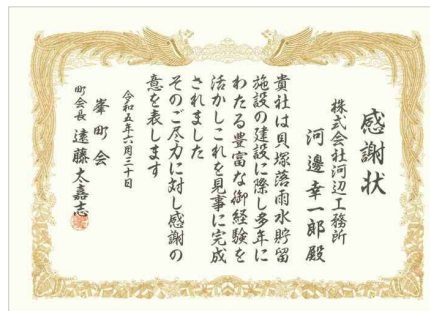 感謝状
株式会社河辺工務所
河邊幸一郎殿
貴社は貝塚落雨水貯留
施設の建設に際し多年に
わたる豊富な御経験を
活かしこれを見事に完成
されました
そのご尽力に対し感謝の
意を表します
令和五年六月三十日
峯町会
町会長 遠藤太嘉志